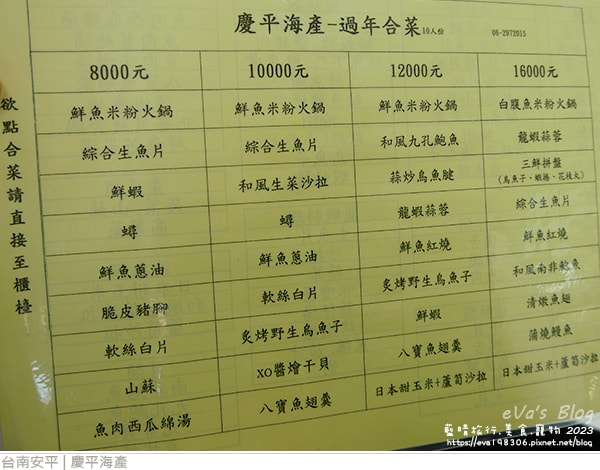 慶平海產-過年合菜10人份 06-2972015
欲點合菜請直接至櫃檯
8000元 10000元 12000元 16000元
鮮魚米粉火鍋 鮮魚米粉火鍋 鮮魚米粉火鍋 白腹魚米粉火鍋
綜合生魚片 綜合生魚片 和風九孔鮑魚 龍蝦蒜蓉
鮮蝦 和風生菜沙拉 蒜炒烏魚腱 三鮮拼盤
(烏魚子、蝦捲、花枝丸)
蟳 蟳 龍蝦蒜蓉 綜合生魚片
鮮魚蔥油 鮮魚蔥油 鮮魚紅燒 鮮魚紅燒
脆皮豬腳 軟絲白片 炙烤野生烏魚子 和風南非鮑魚
軟絲白片 炙烤野生烏魚子 鮮蝦 清燉魚翅
山蘇 xo醬燴干貝 八寶魚翅羹 蒲燒鰻魚
魚肉西瓜綿湯 八寶魚翅羹 日本甜玉米+蘆筍沙拉 日本甜玉米+蘆筍沙拉
eVa's Blog
藍晴旅行.美食.寵物 2023
https://eva198306.pixnet.net/blog
台南安平 | 慶平海產